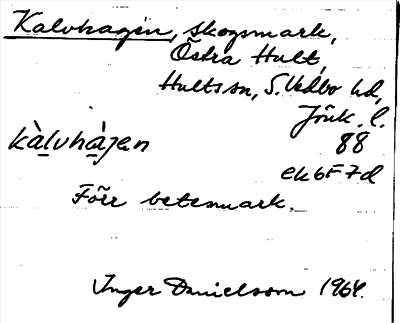 Kalvhagen, skogsmark,
Östra Hult,
Hults sn, S. Vedbo hd,
Jönk. l.
kàlvhàjen 88
ek 6F7d
Förr betesmark.
Inger Danielsson 1964.